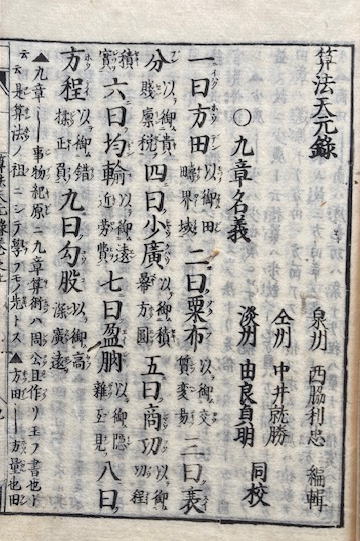 算法天元錄
泉州 西脇利忠 編輯
仝州 中井就勝
淡州 由良貞明 同校
〇九章名義
一曰方田以御田疇界域二曰粟布以御交質変易三曰衰
分以御貴賤稟税四曰小廣以御積冪方圓五曰商功以御功程
積實六曰均輸以御遠近労費七曰盈朒以御隠雜互見八曰
方程以御錯揉正負九曰勾股以御高深廣遠
▲九章――事物紀原ニ九章算術ハ周公旦作リ玉フ書也ト
云云是算法ノ祖ニシテ學フモノ先トス▲方田――方量也田